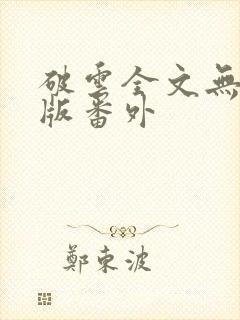 破雲全文無
版番外
鄭東波